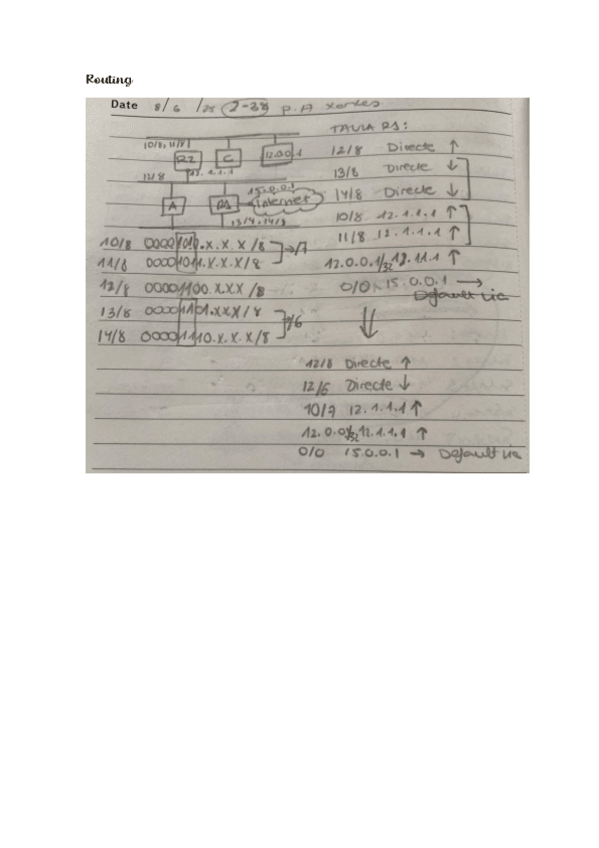 Routing
Date 8/6
TAULA R1:
10/8, 11/8
R2
C
12.0.0.1
12.1.1.1
12/8
A
R1
15.0.0.1
Internet
13/8, 14/8
12/8 Directe ↑
13/8 Directe ↓
14/8 Directe ↓
10/8 12.1.1.1 ↑
11/8 12.1.1.1 ↑
12.0.0.1/32 12.1.1.1 ↑
0/0 15.0.0.1 →
Default via
10/8 00001010.x.x.x /8 → /7
11/8 00001011.x.x.x /8
12/8 00001100.x.x.x /8
13/8 00001101.x.x.x /8
/6
14/8 00001110.x.x.x /8
12/8 Directe ↑
12/6 Directe ↓
10/7 12.1.1.1 ↑
12.0.0.1/32 12.1.1.1 ↑
0/0 15.0.0.1 → Default via